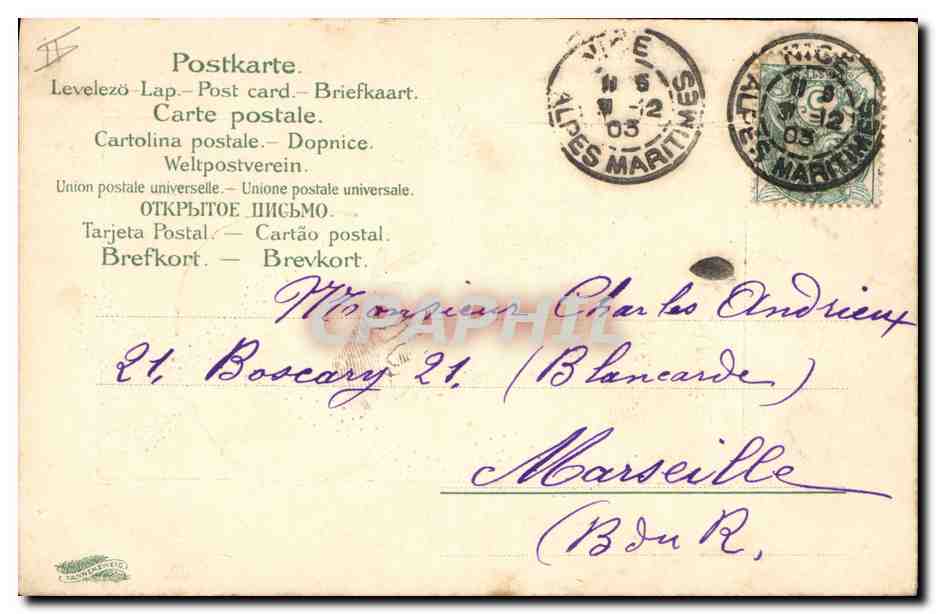 II
Postkarte.
Levelező-Lap.—Post card.—Briefkaart.
Carte postale.
Cartolina postale.—Dopnice.
Weltpostverein.
Union postale universelle.—Unione postale universale.
ОТКРЫТОЕ ПИСЬМО.
Tarjeta Postal. — Cartão postal.
Brefkort. — Brevkort.
NICE
11 5
-12
03
ALPES MARITIMES
NICE
11 5
-12
03
ALPES MARITIMES
5
Monsieur Charles Andrieux
CPAPHIL
21, Boscary 21. (Blancarde)
Marseille
(B du R.
TANNENZWEIG